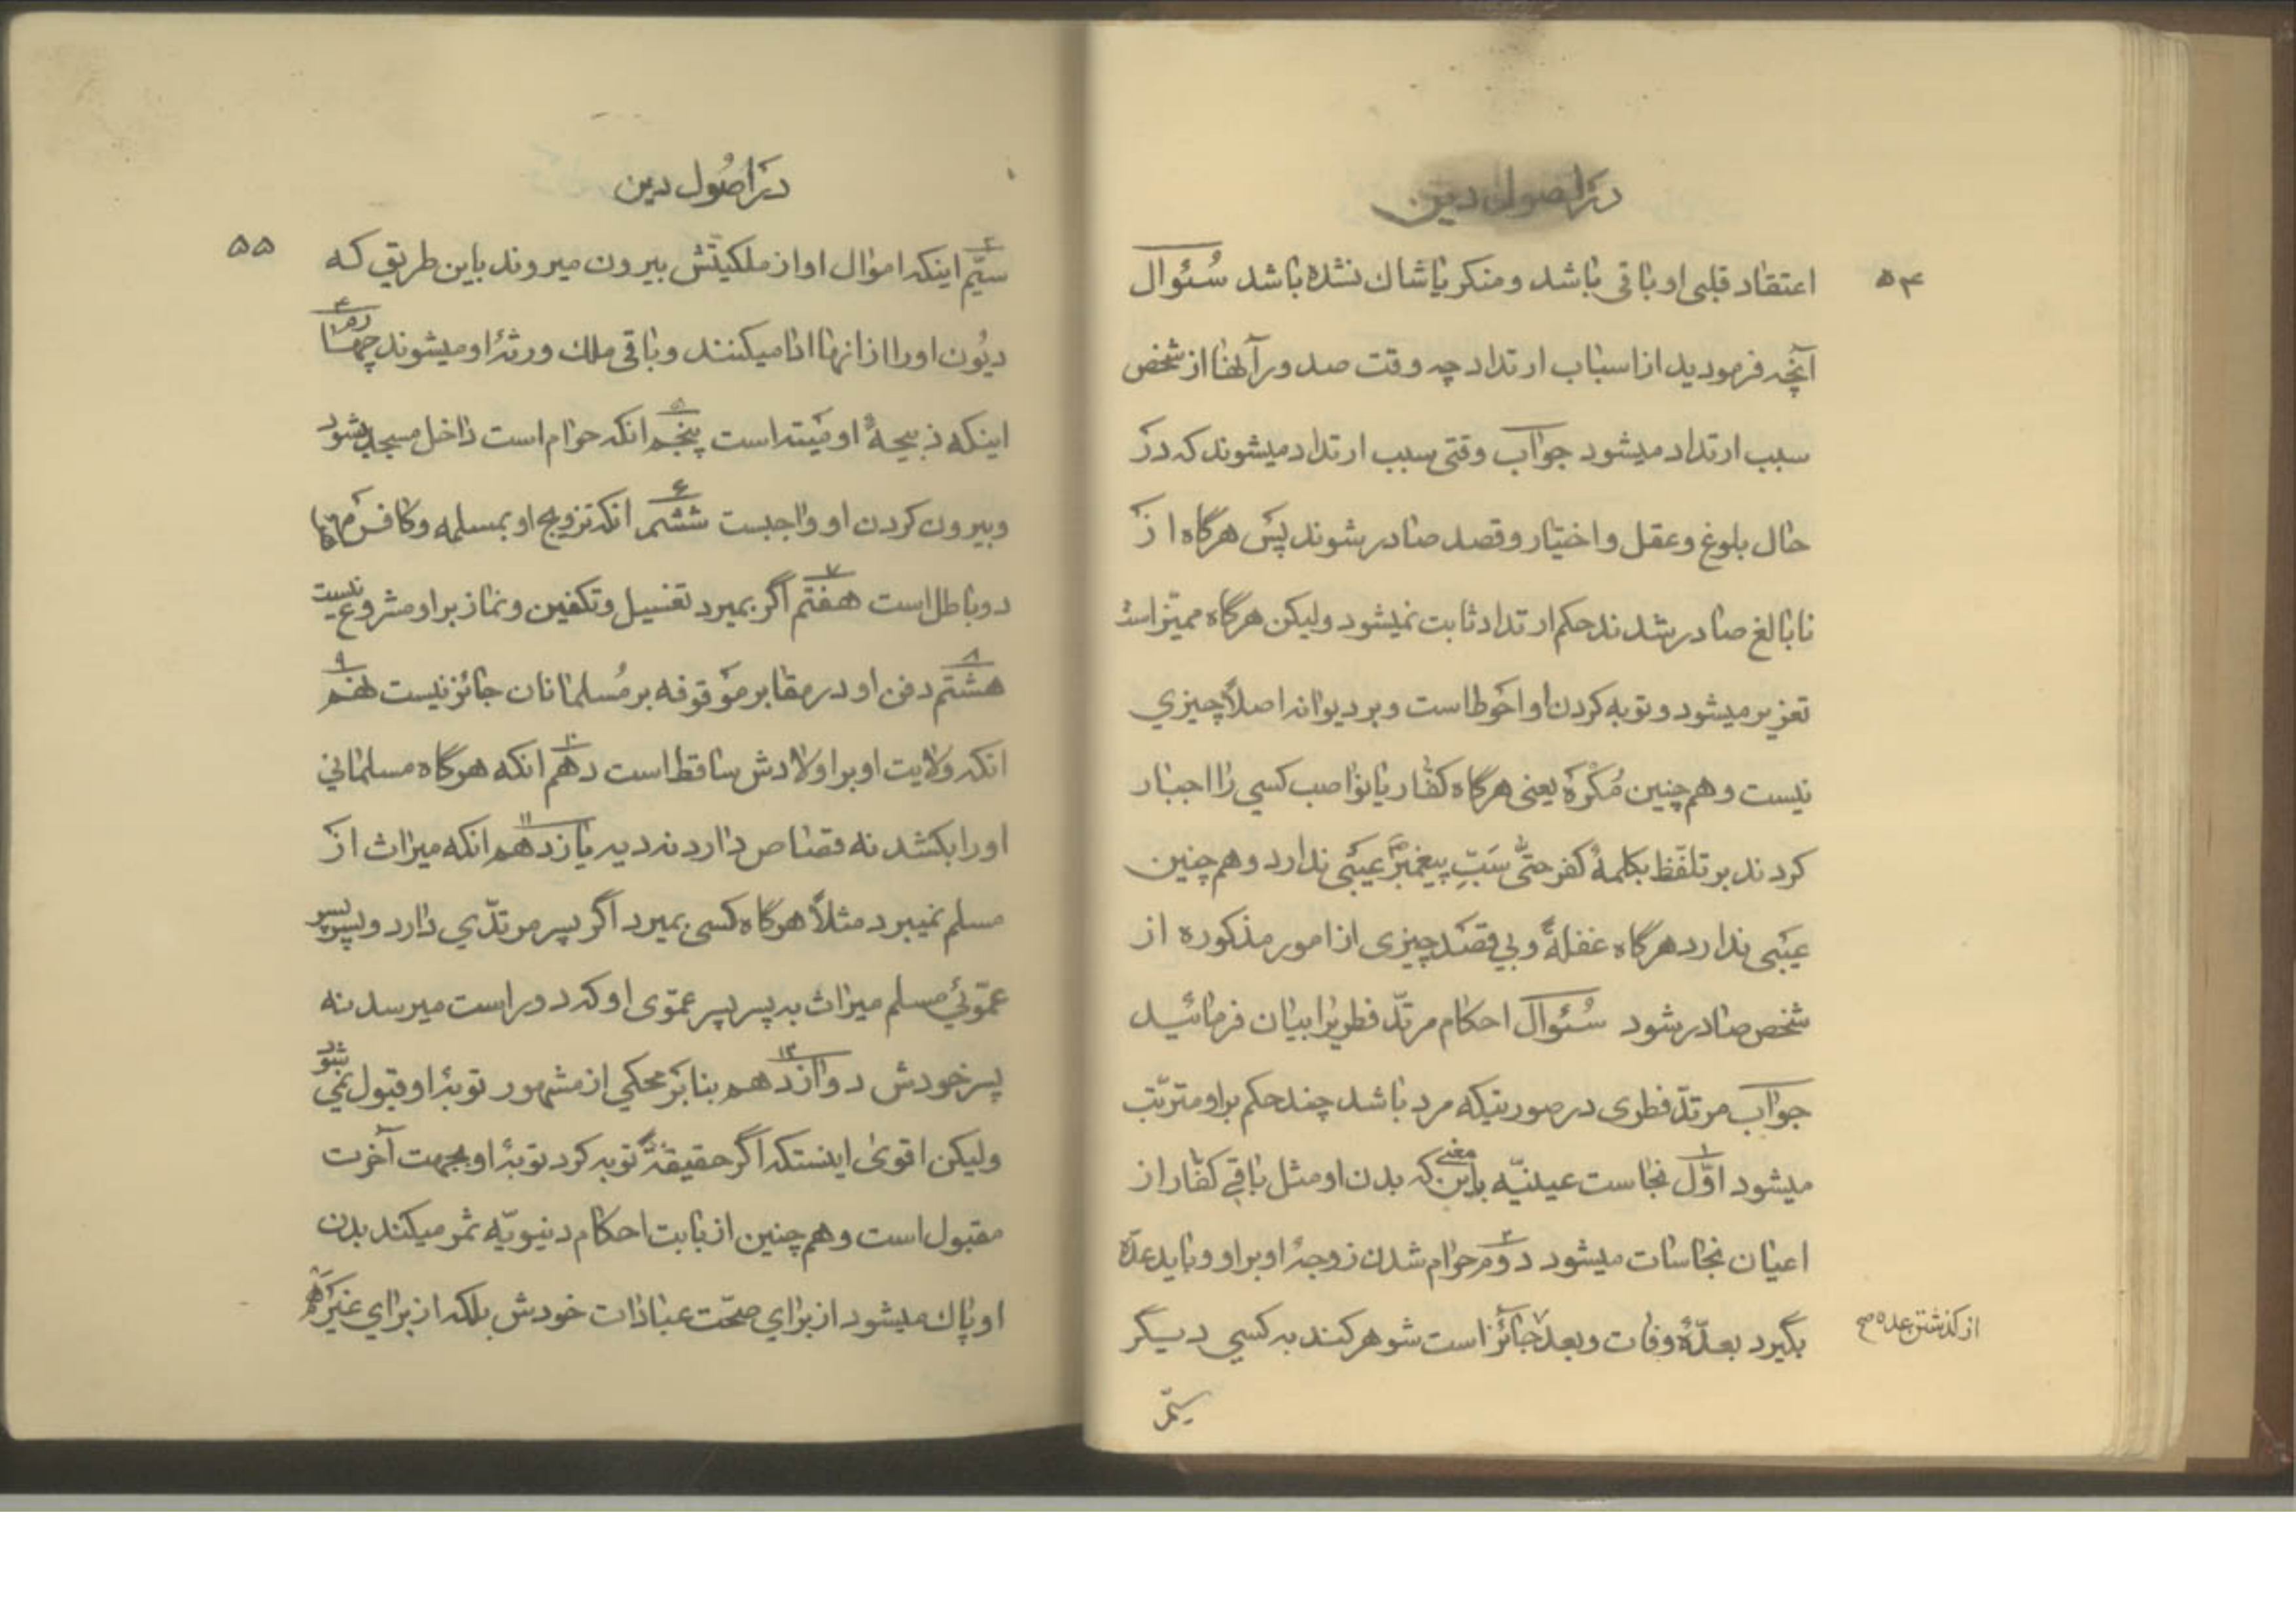 در اصول دین
۵۴
اعتقاد قلبی او باقی باشد و منکر یا شاك نشده باشد سُئوال
آنچه فرمودید از اسباب ارتداد چه وقت صدور آنها از شخص
سبب ارتداد میشود جواب وقتی سبب ارتداد میشوند که در
حال بلوغ و عقل و اختیار و قصد صادر بشوند پس هرگاه از
نابالغ صادر بشدند حکم ارتداد ثابت نمیشود ولیکن هرگاه ممیّز است
تعزیر میشود و توبه کردن او احوط است و بر دیوانه اصلاً چیزي
نیست و هم چنین مُکْرَه یعنی هرگاه کفّار یا نواصب کسي را اجبار
کردند بر تلفّظ بکلمهٔ کفر حتّی سَبِّ پیغمبرؐ عیبی ندارد و هم چنین
عیبی ندارد هرگاه غفلةً و بي قصد چیزی از امور مذکوره از
شخص صادر بشود سُئوال احکام مرتدّ فطریرا بیان فرمائید
جواب مرتدّ فطری در صورتیکه مرد باشد چند حکم بر او مترتّب
میشود اوّل ۱ نجاست عینیّه باین معنی که بدن او مثل باقي کفّار از
اعیان نجاسات میشود دوّم ۲ حرام شدن زوجهٔ او بر او و باید عدّه
بگیرد بعدّهٔ وفات و بعد جائز است شوهر کند به کسي دیگر
از گذشتن عده صح
سیّم
در اُصُول دین
۵۵
سیّم ۳ اینکه اموال او از ملکیّتش بیرون میروند باین طریق که
دیُون او را از انها ادا میکنند و باقی ملك ورثهٔ او میشوند چهارم ۴
اینکه ذبیحهٔ او مَیته است پنجم ۵ انکه حرام است داخل مسجد بشود
و بیرون کردن او واجبست ششم ۶ انکه تزویج او بمسلمه و کافره
دو باطل است هفتم ۷ اگر بمیرد تغسیل و تکفین و نماز بر او مشروع نیست
هشتم ۸ دفن او در مقابر موقوفه بر مُسلمانان جائز نیست نهم ۹
انکه ولایت او بر اولادش ساقط است دهم ۱۰ انکه هرگاه مسلمانی
او را بکشد نه قصاص دارد نه دیه یازدهم ۱۱ انکه میراث از
مسلم نمیبرد مثلاً هرگاه کسی بمیرد اگر پسر مرتدّي دارد و پسر پسر
عمّوئي مسلم میراث به پسر پسر عمّوی او که دور است میرسد نه
پسر خودش دوازدهم ۱۲ بنا بر محکي از مشهور توبهٔ او قبول نمي شود
ولیکن اقوی اینستکه اگر حقیقةً توبه کرد توبهٔ او بجهت آخرت
مقبول است و هم چنین از بابت احکام دنیویّه ثمر میکند بدن
او پاك میشود از برای صحّت عبادات خودش بلکه از برای غیر هم